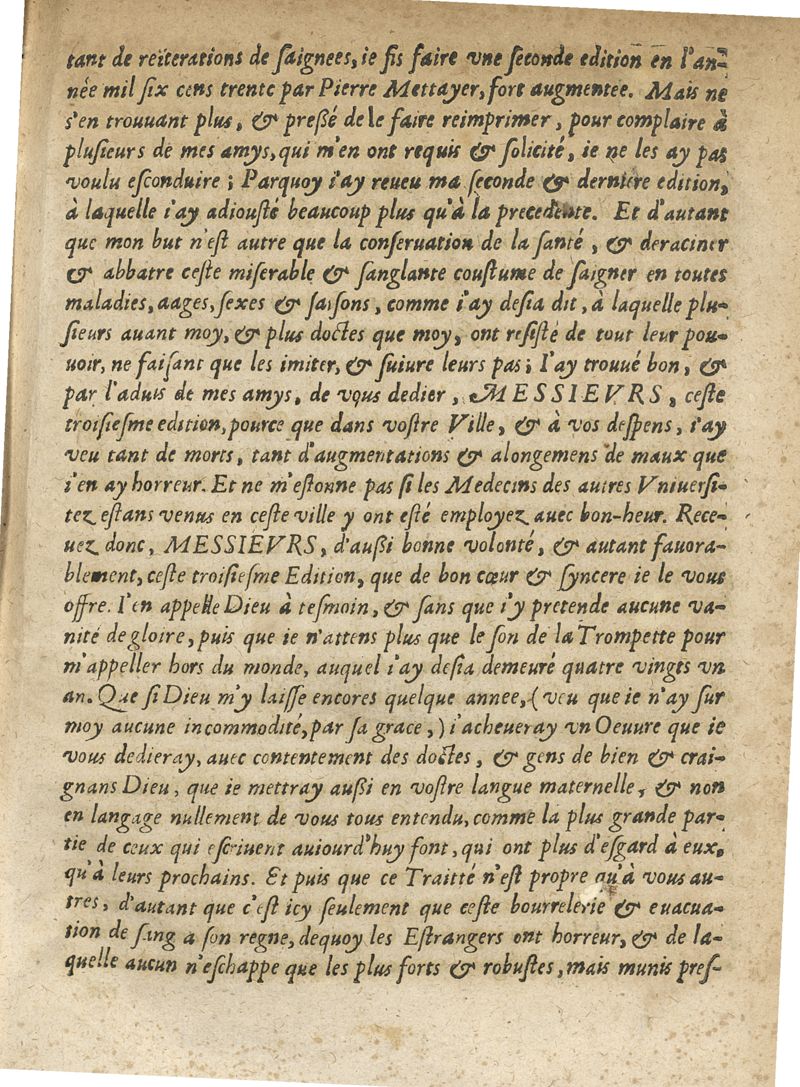 tant de reïterations de ſaignees, ie fis faire vne ſeconde edition en l'an-
née mil ſix cens trente par Pierre Mettayer, fort augmentee. Mais ne
s'en trouuant plus, & preßé de le faire reimprimer, pour complaire à
pluſieurs de mes amys, qui m'en ont requis & ſolicité, ie ne les ay pas
voulu eſconduire; Parquoy i'ay reueu ma ſeconde & derniere edition,
à laquelle i'ay adiouſté beaucoup plus qu'à la precedente. Et d'autant
que mon but n'eſt autre que la conſeruation de la ſanté, & deraciner
& abbatre ceſte miſerable & ſanglante couſtume de ſaigner en toutes
maladies, aages, ſexes & ſaiſons, comme i'ay deſia dit, à laquelle plu-
ſieurs auant moy, & plus doctes que moy, ont reſiſté de tout leur pou-
uoir, ne faiſant que les imiter, & ſuiure leurs pas; I'ay trouué bon, &
par l'aduis de mes amys, de vous dedier, MESSIEVRS, ceſte
troiſieſme edition, pource que dans voſtre Ville, & à vos deſpens, i'ay
veu tant de morts, tant d'augmentations & alongemens de maux que
i'en ay horreur. Et ne m'eſtonne pas ſi les Medecins des autres Vniuerſi-
tez eſtans venus en ceſte ville y ont eſté employez auec bon-heur. Rece-
uez donc, MESSIEVRS, d'außi bonne volonté, & autant fauora-
blement, ceſte troiſieſme Edition, que de bon cœur & ſyncere ie le vous
offre. I'en appelle Dieu à teſmoin, & ſans que i'y pretende aucune va-
nité de gloire, puis que ie n'attens plus que le ſon de la Trompette pour
m'appeller hors du monde, auquel i'ay deſia demeuré quatre vingts vn
an. Que ſi Dieu m'y laiſſe encores quelque annee, (veu que ie n'ay ſur
moy aucune incommodité, par ſa grace,) i'acheueray vn Oeuure que ie
vous dedieray, auec contentement des doctes, & gens de bien & crai-
gnans Dieu, que ie mettray außi en voſtre langue maternelle, & non
en langage nullement de vous tous entendu, comme la plus grande par-
tie de ceux qui eſcriuent auiourd'huy font, qui ont plus d'eſgard à eux,
qu'à leurs prochains. Et puis que ce Traitté n'eſt propre qu'à vous au-
tres, d'autant que c'eſt icy ſeulement que ceſte bourrelerie & euacua-
tion de ſang a ſon regne, dequoy les Eſtrangers ont horreur, & de la-
quelle aucun n'eſchappe que les plus forts & robuſtes, mais munis preſ-